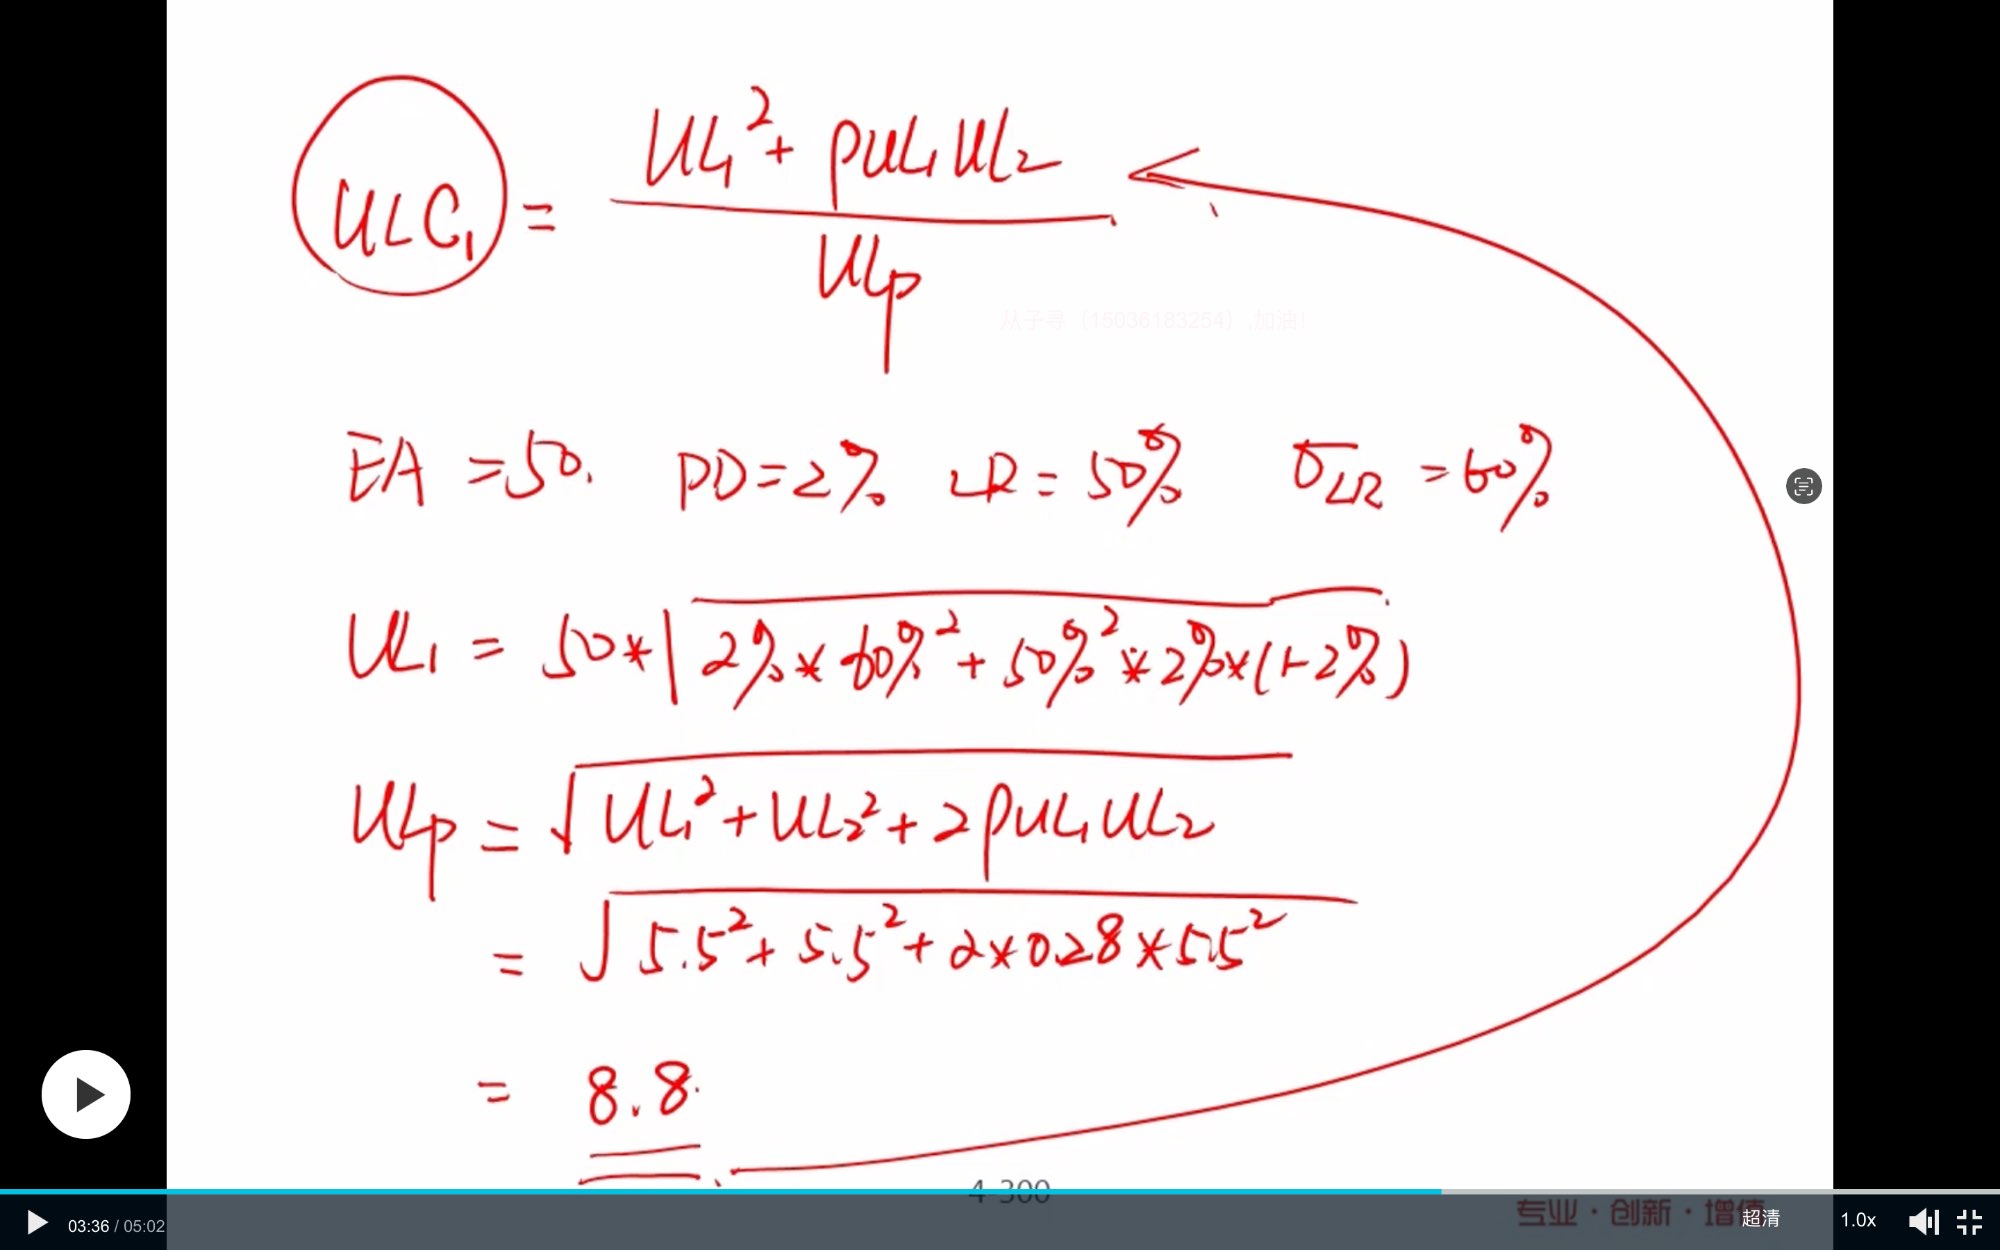 ULC₁ = (UL₁² + ρUL₁UL₂) / ULp
从子寻（15036183254）,加油！
EA = 50. PD = 2% LR = 50% σLR = 60%
UL₁ = 50*√(2%*60%² + 50%²*2%*(1-2%))
ULp = √(UL₁² + UL₂² + 2ρUL₁UL₂)
= √(5.5² + 5.5² + 2*0.28*5.5²)
= 8.8
4-300
专业·创新·增值
03:36 / 05:02 超清 1.0x